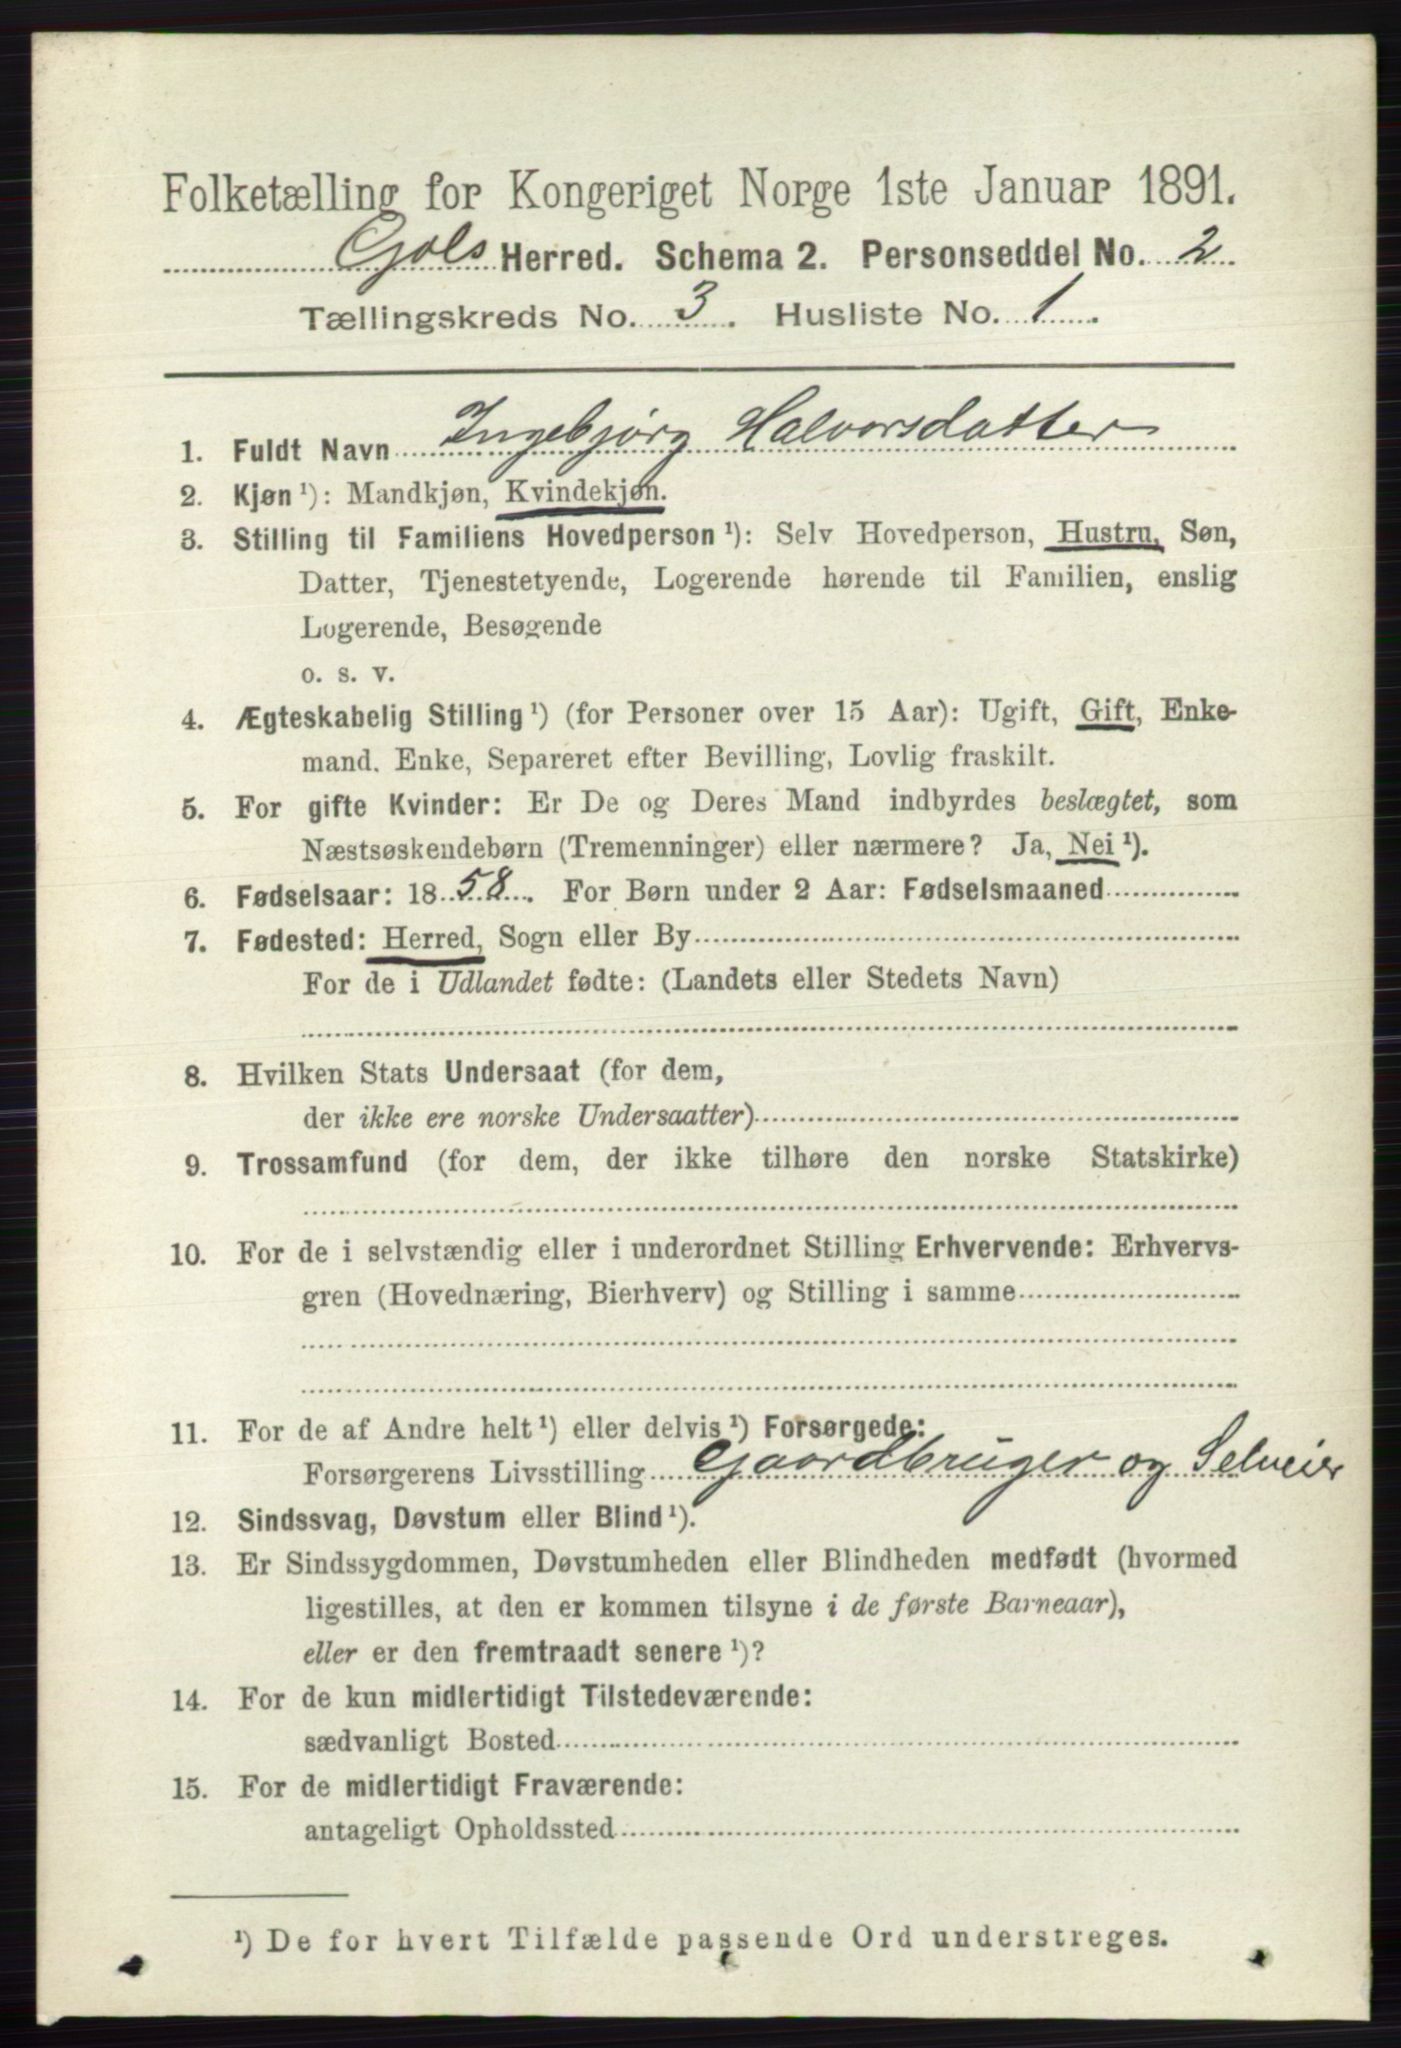 Folketælling for Kongeriget Norge 1ste Januar 1891.
Gols Herred. Schema 2. Personseddel No. 2
Tællingskreds No. 3. Husliste No. 1.
1. Fuldt Navn Ingebjørg Halvorsdatter
2. Kjøn ¹): Mandkjøn, Kvindekjøn.
3. Stilling til Familiens Hovedperson ¹): Selv Hovedperson, Hustru, Søn,
Datter, Tjenestetyende, Logerende hørende til Familien, enslig
Logerende, Besøgende
o. s. v.
4. Ægteskabelig Stilling ¹) (for Personer over 15 Aar): Ugift, Gift, Enke-
mand. Enke, Separeret efter Bevilling, Lovlig fraskilt.
5. For gifte Kvinder: Er De og Deres Mand indbyrdes beslægtet, som
Næstsøskendebørn (Tremenninger) eller nærmere? Ja, Nei ¹).
6. Fødselsaar: 1858. For Børn under 2 Aar: Fødselsmaaned
7. Fødested: Herred, Sogn eller By
For de i Udlandet fødte: (Landets eller Stedets Navn)
8. Hvilken Stats Undersaat (for dem,
der ikke ere norske Undersaatter)
9. Trossamfund (for dem, der ikke tilhøre den norske Statskirke)
10. For de i selvstændig eller i underordnet Stilling Erhvervende: Erhvervs-
gren (Hovednæring, Bierhverv) og Stilling i samme
11. For de af Andre helt ¹) eller delvis ¹) Forsørgede:
Forsørgerens Livsstilling Gaardbruger og Selveier
12. Sindssvag, Døvstum eller Blind ¹).
13. Er Sindssygdommen, Døvstumheden eller Blindheden medfødt (hvormed
ligestilles, at den er kommen tilsyne i de første Barneaar),
eller er den fremtraadt senere ¹)?
14. For de kun midlertidigt Tilstedeværende:
sædvanligt Bosted
15. For de midlertidigt Fraværende:
antageligt Opholdssted
¹) De for hvert Tilfælde passende Ord understreges.